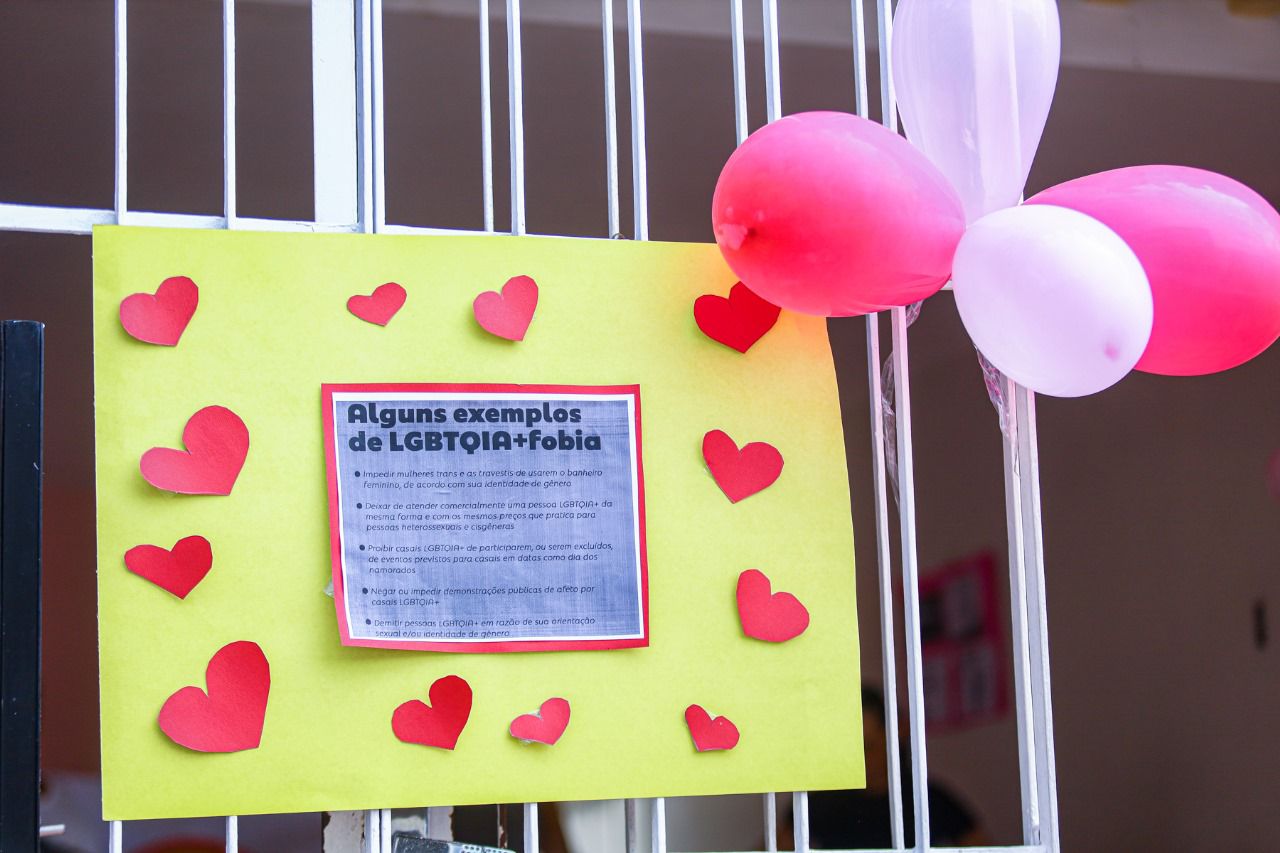 Alguns exemplos
de LGBTQIA+fobia
● Impedir mulheres trans e as travestis de usarem o banheiro
feminino, de acordo com sua identidade de gênero
● Deixar de atender comercialmente uma pessoa LGBTQIA+ da
mesma forma e com os mesmos preços que pratica para
pessoas heterossexuais e cisgêneras
● Proibir casais LGBTQIA+ de participarem, ou serem excluídos,
de eventos previstos para casais em datas como dia dos
namorados
● Negar ou impedir demonstrações públicas de afeto por
casais LGBTQIA+
● Demitir pessoas LGBTQIA+ em razão de sua orientação
sexual e/ou identidade de gênero